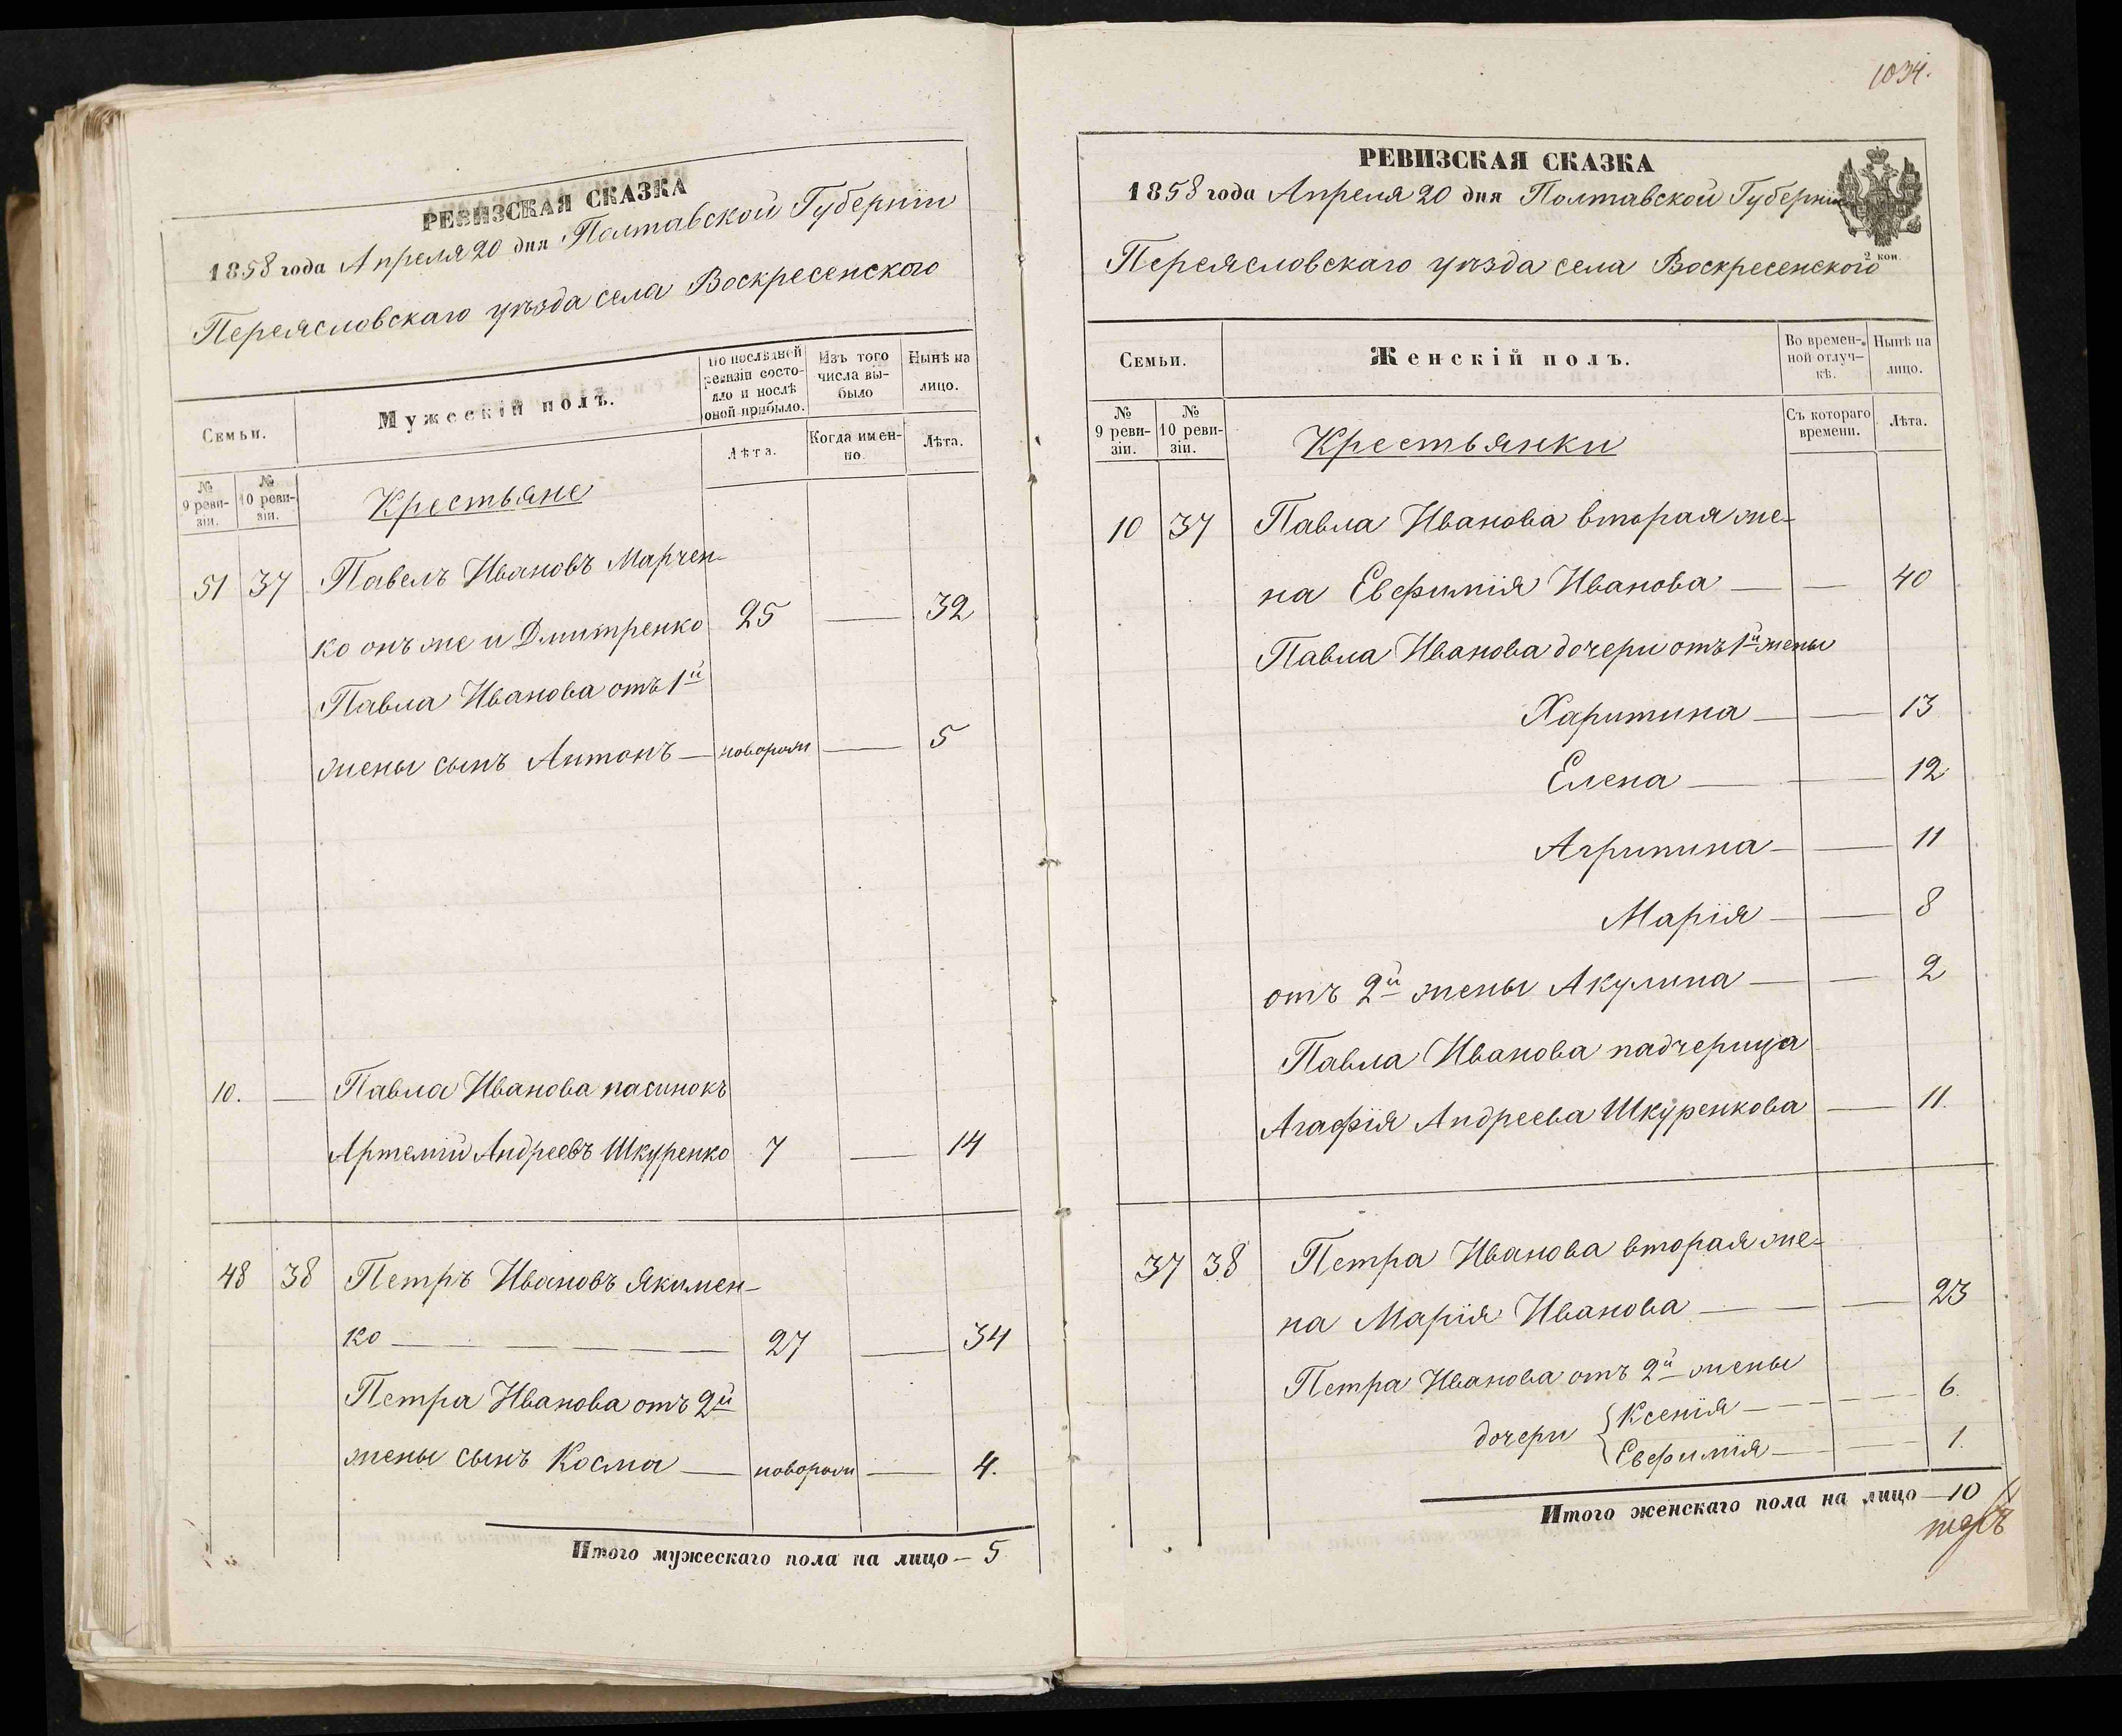 РЕВИЗСКАЯ СКАЗКА
1858 года Апреля 20 дня Полтавской Губерніи
Переясловскаго уѣзда села Воскресенского
Семьи.
Мужескій полъ.
По послѣдней ревизіи состояло и послѣ оной прибыло.
Изъ того числа выбыло
Нынѣ на лицо.
Лѣта.
Когда именно.
Лѣта.
№ 9 ревизіи.
№ 10 ревизіи.
Крестьяне
51 37 Павелъ Ивановъ Марчен-
ко онъ же и Дмитренко 25 — 32
Павла Иванова отъ 1й
жены сынъ Антонъ —новорож — 5
10. — Павла Иванова пасинокъ
Артемій Андреевъ Шкуренко 7 — 14
48 38 Петръ Ивановъ Якимен-
ко — 27 — 34
Петра Иванова отъ 2й
жены сынъ Косма — новорож — 4.
Итого мужескаго пола на лицо — 5
1034.
РЕВИЗСКАЯ СКАЗКА
1858 года Апреля 20 дня Полтавской Губерніи
2 коп.
Переясловскаго уѣзда села Воскресенского
Семьи.
Женскій полъ.
Во времен-
ной отлуч-
кѣ.
Нынѣ на
лицо.
№ 9 ревизіи.
№ 10 ревизіи.
Съ котораго
времени.
Лѣта.
Крестьянки
10 37 Павла Иванова вторая же-
на Евфимія Иванова — — 40
Павла Иванова дочери отъ 1й жены
Харитина — — 13
Елена — — 12
Агрипина — — 11
Марія — — 8
отъ 2й жены Акулина — — 2
Павла Иванова падчерица
Агафія Андреева Шкуренкова — 11.
37 38 Петра Иванова вторая же-
на Марія Иванова — — 23
Петра Иванова отъ 2й жены
дочери { Ксенія — — 6.
Евфимія — — 1.
Итого женскаго пола на лицо — 10